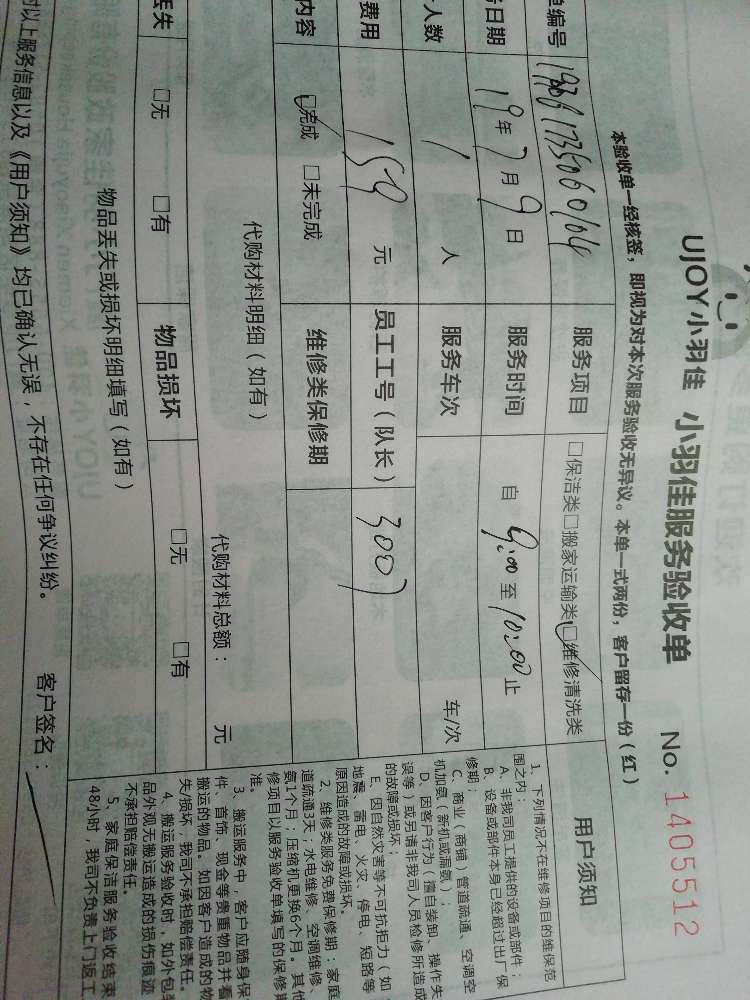 UJOY小羽佳 小羽佳服务验收单 No. 1405512
本验收单一经核签，即视为对本次服务验收无异议。本单一式两份，客户留存一份（红）
单编号 服务项目 □保洁类□搬家运输类☑维修清洗类
日期 19年7月9日 服务时间 自9:00至10:00止
人数 1人 服务车次 车/次
费用 159元 员工工号（队长） 3007
内容 ☑完成 □未完成 维修类保修期
代购材料明细（如有） 代购材料总额： 元
丢失 □无 □有 物品损坏 □无 □有
物品丢失或损坏明细填写（如有）
对以上服务信息以及《用户须知》均已确认无误，不存在任何争议纠纷。 客户签名：
用户须知
1、下列情况不在维修项目的维保范
围之内：
A、非我司员工提供的设备或部件；
B、设备或部件本身已经超过出厂保
修期；
C、商业（商铺）管道疏通、空调空
机加氨（新机或漏氨）；
D、因客户行为（擅自装卸、操作失
误等）或另请非我司人员检修所造成
的故障或损坏；
E、因自然灾害等不可抗拒力（如
地震、雷电、火灾、停电、短路等
原因造成的故障或损坏。
2、维修类服务免费保修期：家庭
道疏通3天；水电维修、空调维修、
氨1个月；压缩机更换6个月。其他
修项目以服务验收单填写的保修期
准。
3、搬运服务中，客户应随身保
件、首饰、现金等贵重物品并看
搬运的物品。如因客户造成的物
失/损坏，我司不承担赔偿责任。
4、搬运服务验收时，如外包
品外观无搬运造成的损伤痕迹
不承担赔偿责任。
5、家庭保洁服务验收结束
48小时，我司不负责上门返工